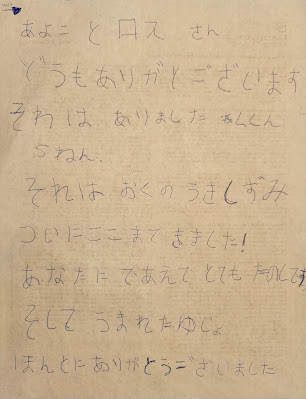 あよこ と ロス さん
どうもありがとございます
そわは ありました
5ねん.
それは おくの うきしずみ
ついにここまできました!
あなたに であえて とても たのしです
そして うまれたゆじょ
ほんとにありがとうございました